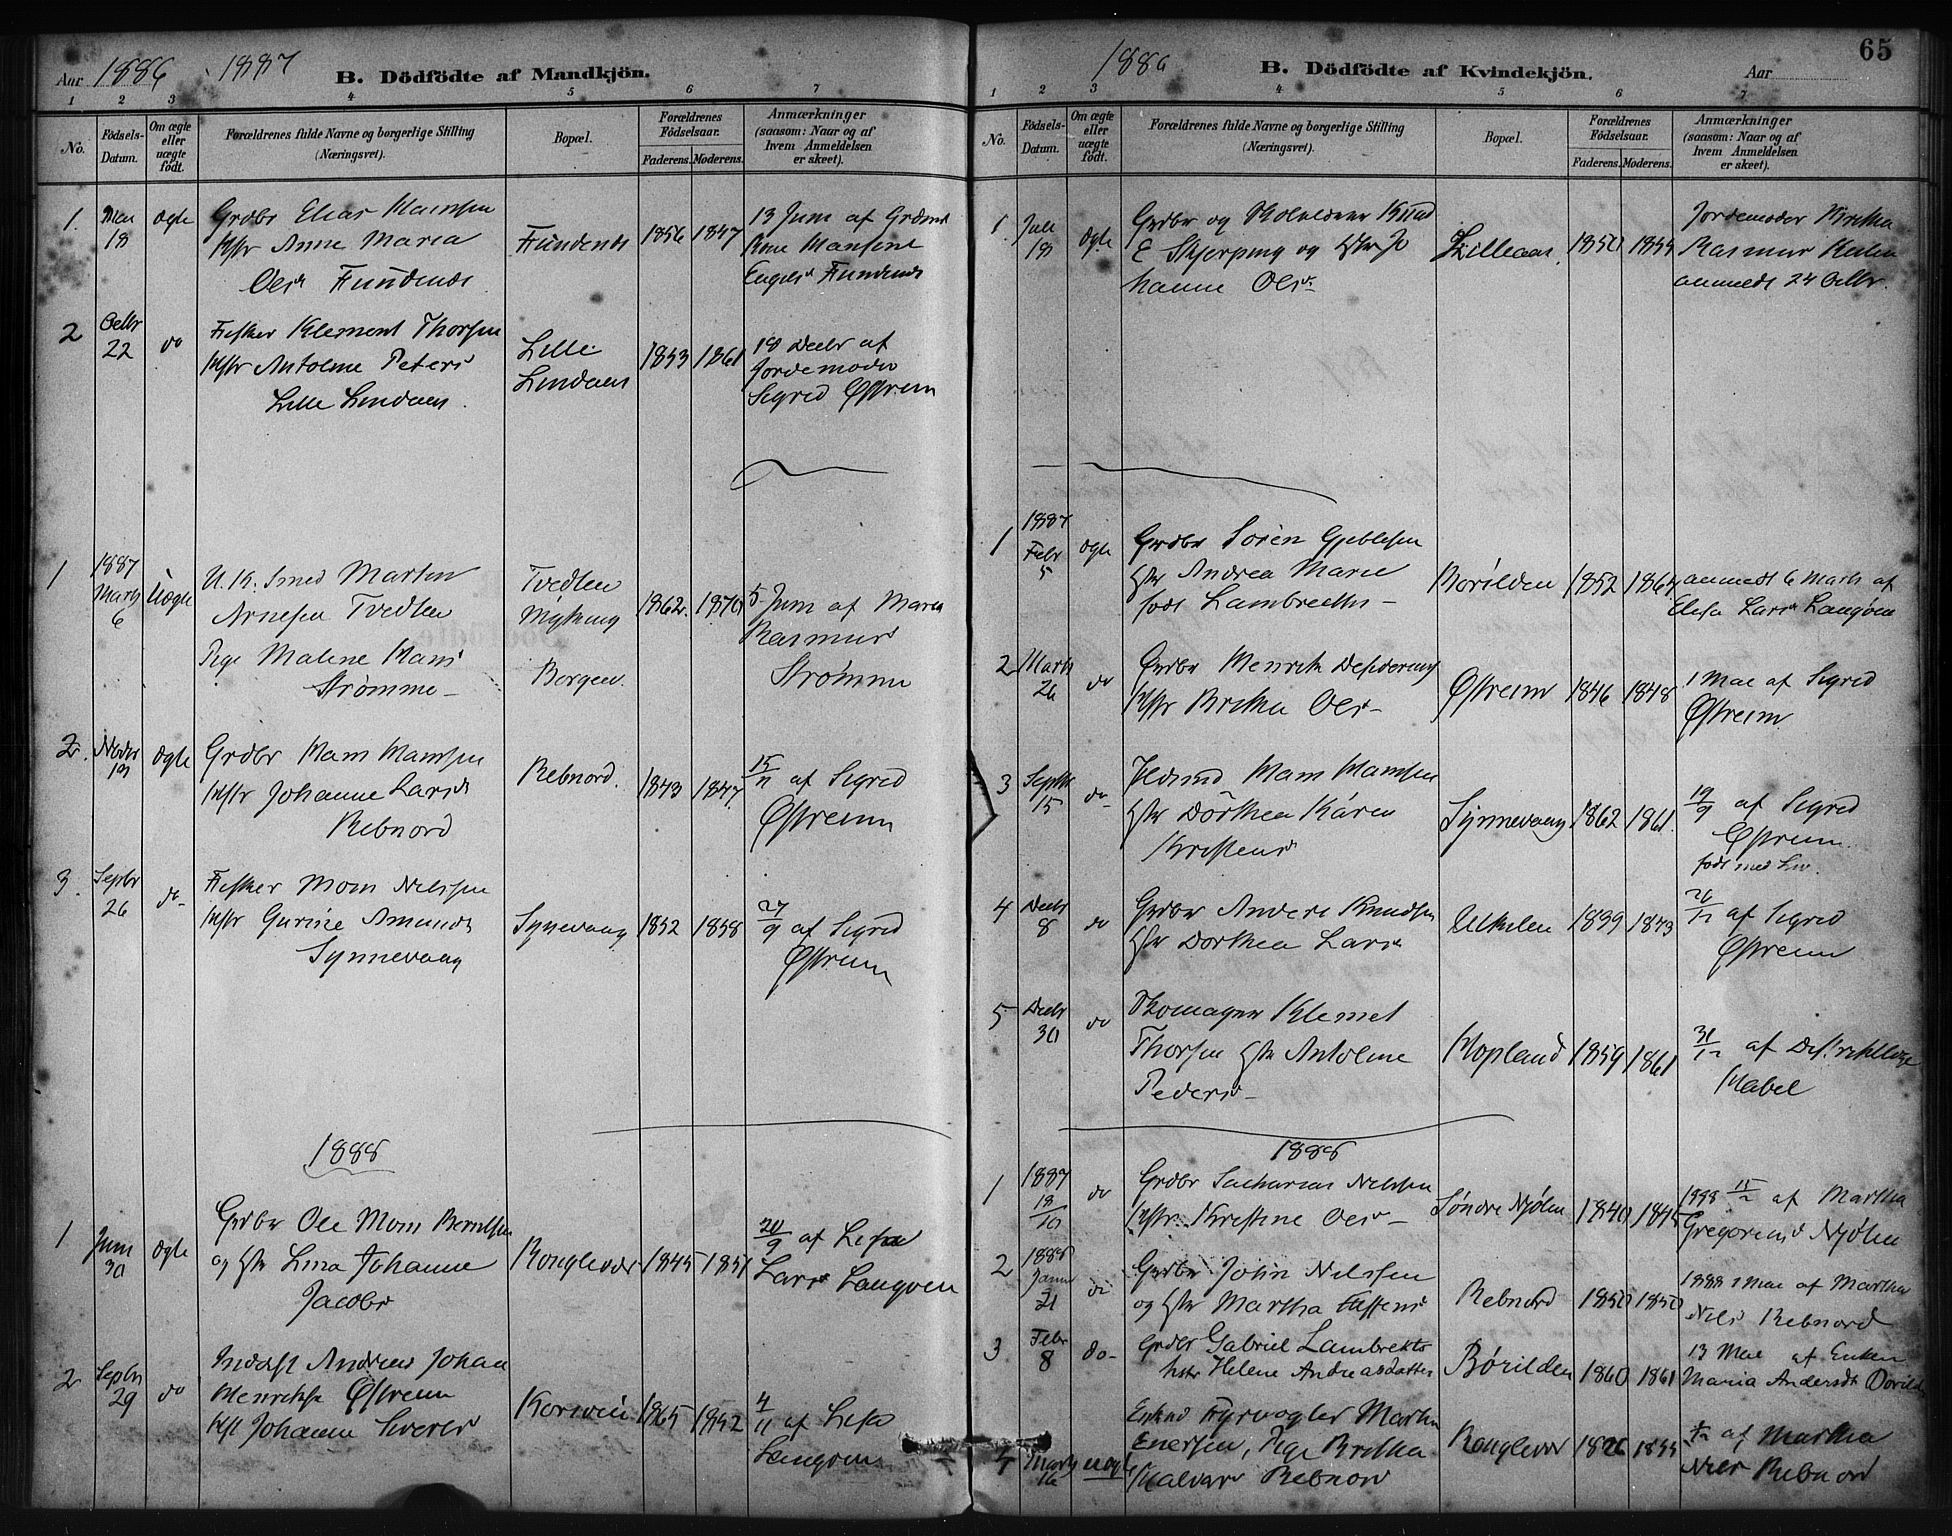 Aar 1886 1887 B. Dödfödte af Mandkjön.
1 2 3 4 5 6 7
No. Födsels-Datum. Om ægte eller uægte födt. Forældrenes fulde Navne og borgerlige Stilling (Næringsvei). Bopæl. Forældrenes Födselsaar. Faderens. Moderens. Anmærkninger (saasom: Naar og af hvem Anmeldelsen er skeet).
1. Mai 18 ægte Grdbr Elias Hansen
Hstr Anne Maria
Olsd Fundenes
Fundenes 1856 1847
13 Juni af Grdmd
Engelsd Fundenes
2 Octbr 22 do Fisker Klement Thorsen
Hstr Antoline Peters
Lille Lindaas
Lille
Lindaas
1853 1861
18 Decbr af
Jordemoder
Sigrid Østreim
1 1887 Marts 6 Uægte U.K. Smed Martin
Arnesen Tvedten
Pige Malene Hans
Strømme
Tvedten
Borgen
1862 1870
5 Juni af Maria
Rasmus
Strømme
2. 19 ægte Grdbr Hans Hansen
Hstr Johanne Larsd
Rebnord
Rebnord. 1843 1847
15/11 af Sigrid
Østreim
3. Septbr 26 do Fisker Mons Nilssen
Hstr Gurine Amunds
Synnevaag
Synnevaag 1852 1858
27/9 af Sigrid
Østreim
1888
1 Juni 30 ægte Grdbr Ole Mons Berntsen
og Hstr Lina Johanne
Jacobs
Ronglevær 1845 1851
20/9 af Lisa
Lars Langøen
2 Septbr 29 do Inderst Andreas Johan
Henriksen Østreim
Hst Johanne Siverts
1865 1852
4/11 af Lisa
Langøen
65
1886 B. Dödfödte af Kvindekjön. Aar
1 2 3 4 5 6 7
No. Födsels-Datum. Om ægte eller uægte födt. Forældrenes fulde Navne og borgerlige Stilling (Næringsvei). Bopæl. Forældrenes Födselsaar. Faderens. Moderens. Anmærkninger (saasom: Naar og af hvem Anmeldelsen er skeet).
1 Juli 18 ægte Grdbr og Skoleлærer Knud
E Skjerping og Hstr Jo
hanne Ols
Lilleaas 1850 1855
Jordemoder Brithe
Rasmus
anmeldt 24 Octbr.
1 1887 Febr 5 ægte Grdbr Sören Gjeblesen
Hstr Andrea Marie
født Lambrechts
Børilden 1852 1864
anmeldt 6 Marts af
Elisa Lars Langøen
2 Marts 26 do Grdbr Henrik
Hstr Brithe Ols
Østreim 1846 1848
1 Mai af Sigrid
Østreim
3 Septbr 15 do Hans Hansen
Hstr Dorthea Karen
Kristens
Synnevaag 1862 1861.
19/9 af Sigrid
Østreim.
født med Liv.
4 Decbr 8 do Grdbr Anders Knudsen
Hstr Dorthea Lars
Uthelen 1839 1843
20/12 af Sigrid
Østreim
5 Decbr 30 do Skomager Klemet
Thorsen Hstr Antoline
Peders
Hopland 1859 1861
31/12 af Distriktslæge
Habel
1888
1 1887 18/10 do Grdbr Sacharias Nilssen
Hstr Kristine Ols
Søndre Mjølen 1840 1845
1888 15/2 af Martha
Gregorius Mjølen
2 1888 Januar 21 do Grdbr John Nilssen
og Hstr Martha
Rebnord 1850 1850
1888 1 Mai af Martha
Nils Rebnord
3 Febr 8 do Grdbr Gabriel Lambrekts
hstr Helene Andreasdatter
Børilden 1860 1861
13 Mai af Enken
Maria Andersdt Børilden
4 Marts 16 uægte Enkmd Fyrvogter Martin
Enersen, Pige Brithe
Halvar Rebnord
Ronglevær 1826 1855
af Martha
Nils Rebnord